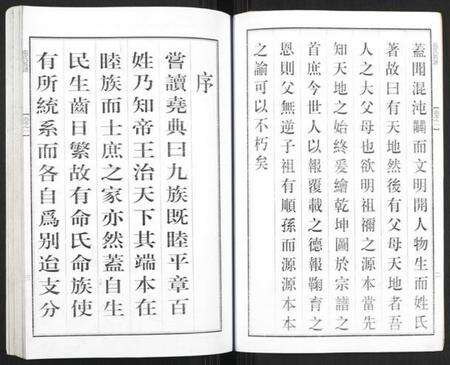 蓋聞混沌闢而文明開人物生而姓氏
著故曰有天地然後有父母天地者吾
人之大父母也欲明祖禰之源本當先
知天地之始終爰繪乾坤圖於宗譜之
首庶今世人以報覆載之德報鞠育之
恩則父無逆子祖有順孫而源源本本
之諭可以不朽矣
序
嘗讀堯典曰九族既睦平章百
姓乃知帝王治天下其端本在
睦族而士庶之家亦然蓋自生
民生齒日繁故有命氏命族使
有所統系而各自爲別迨支分